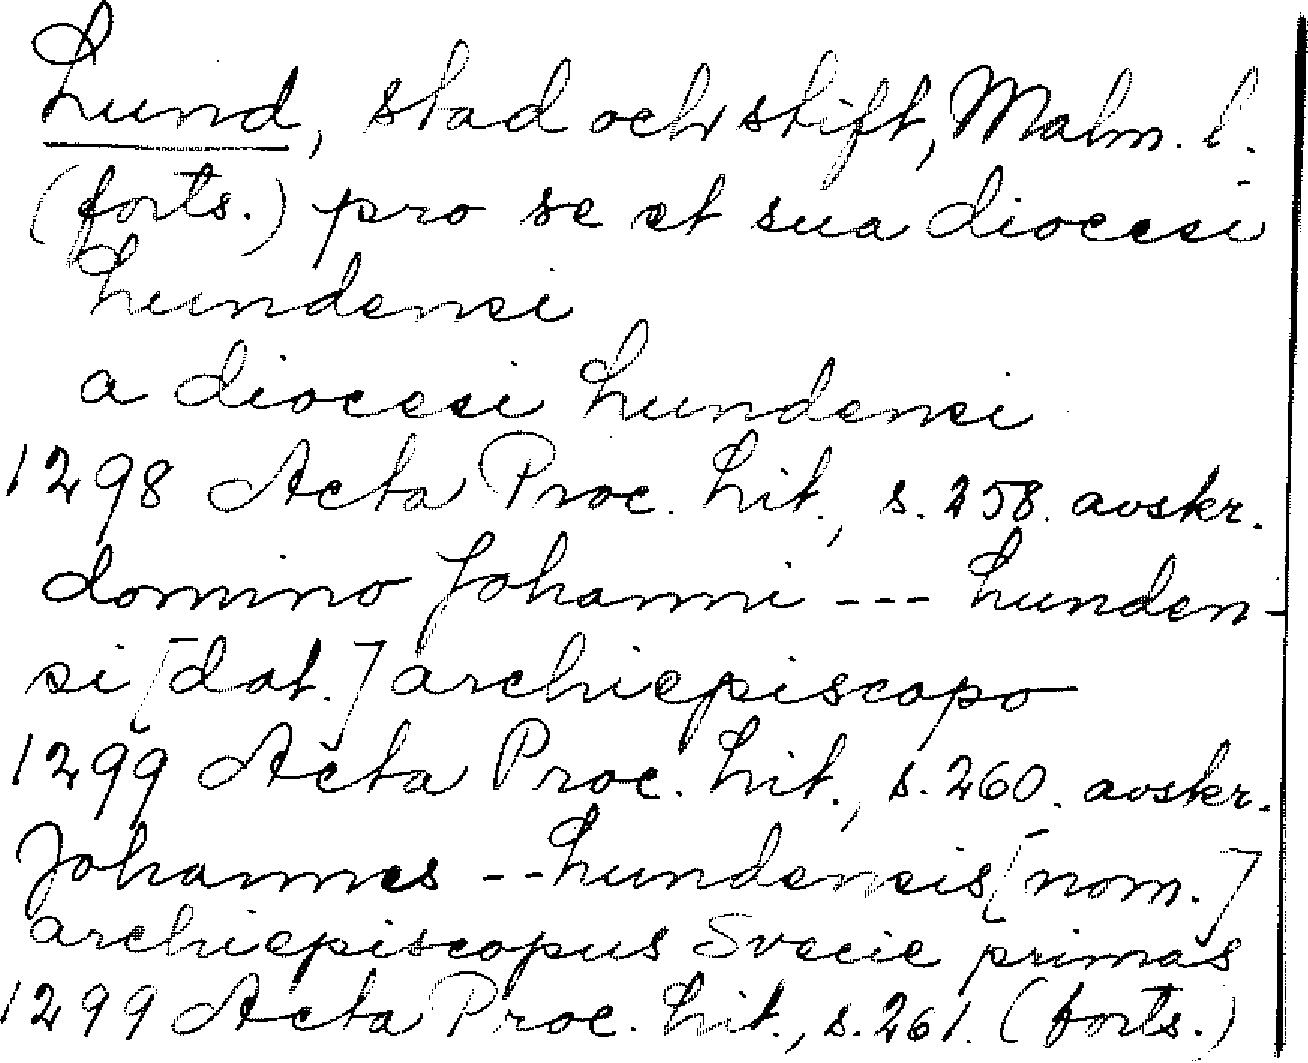 Lund, stad och stift, Malm. l.
(forts.) pro se et sua diocesi
Lundensi
a diocesi Lundensi
1298 Acta Proc. Lit., s. 258. avskr.
domino Johanni --- Lunden-
si [dat.] archiepiscopo
1299 Acta Proc. Lit., s. 260. avskr.
Johannes -- Lundensis [nom.]
archiepiscopus Svecie primas
1299 Acta Proc. Lit., s. 261. (forts.)